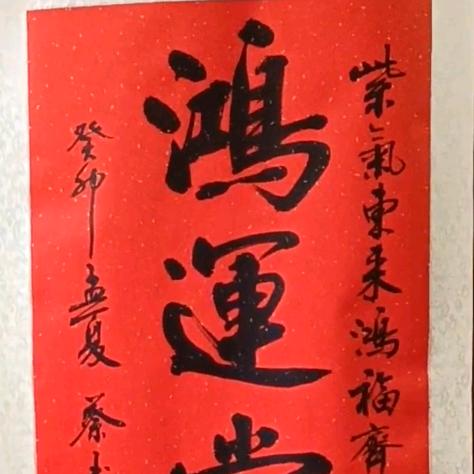 紫氣東来鴻福齊
鴻運當
癸卯孟夏蔡